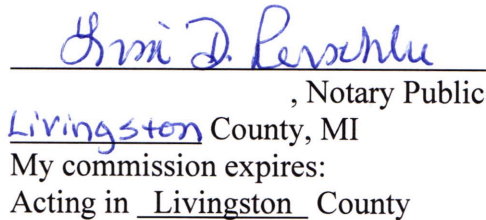 D.
, Notary Public
Livingston County, MI
My commission expires:
Acting in Livingston County